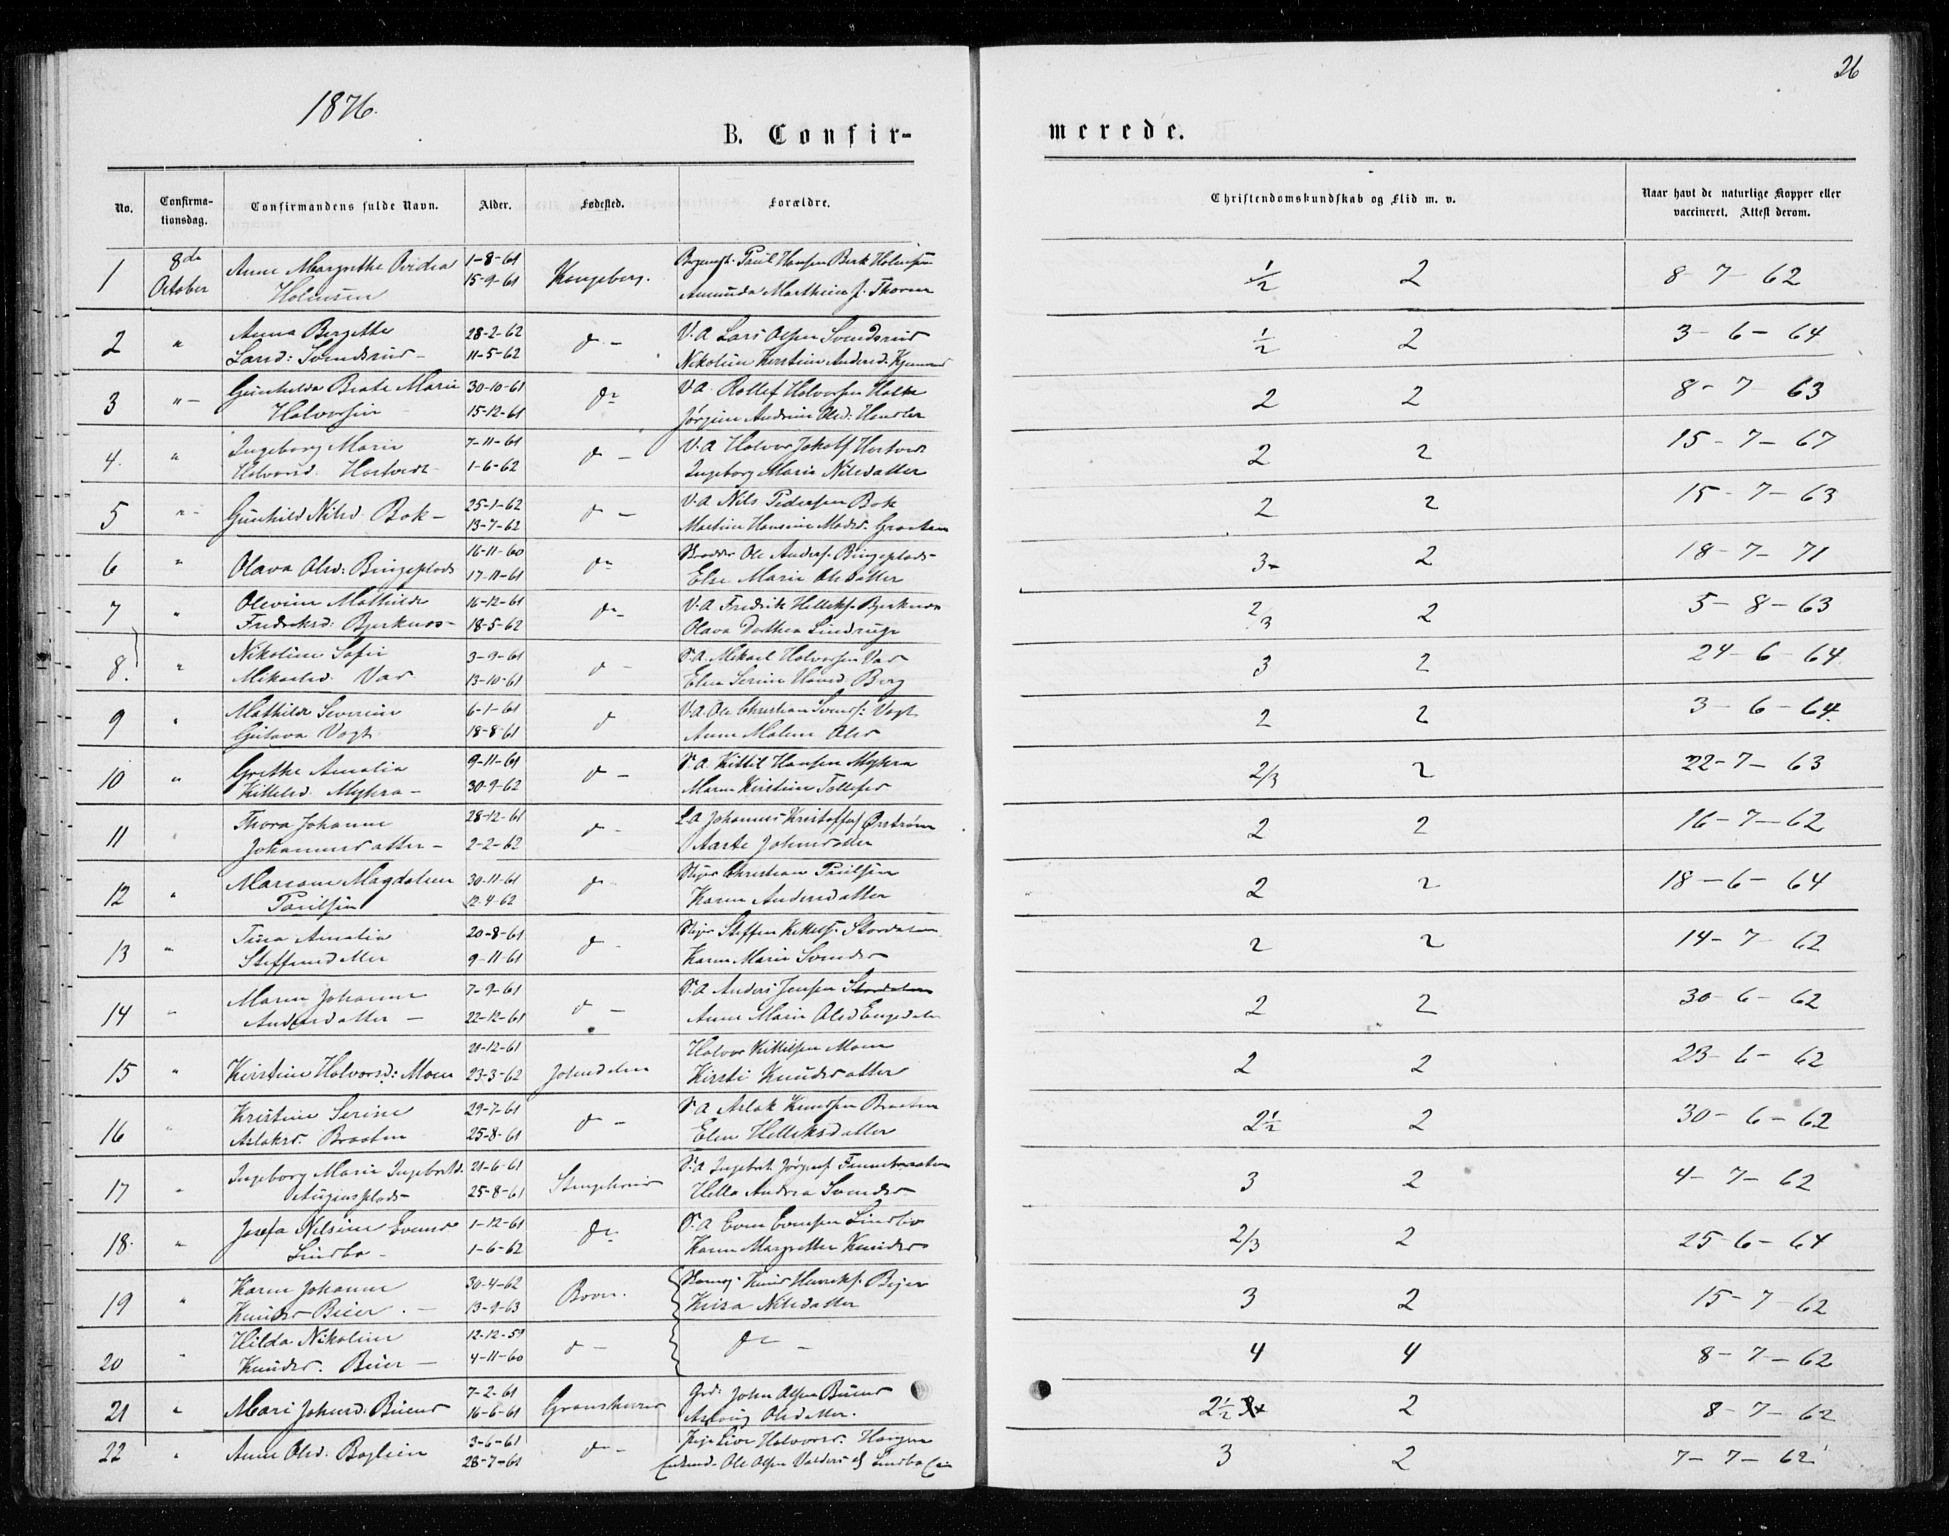 26
1876.
B. Confir-
merede.
No.
Confirma-
tionsdag.
Confirmandens fulde Navn.
Alder.
Fødested.
Forældre.
Christendomskundskab og Flid m. v.
Naar havt de naturlige Kopper eller
vaccineret. Attest derom.
1 8de Anne Margrethe Ovidia 1-8-61 Kongsberg. Paul Hansen Berk Holmsen 1/2 2 8-7-62
October Holmsen 15-9-61 Amunda Marthine f. Thorne
2 " Anna Bergitte 28-2-62 do - V.A Lars Olsen Svendsrud 1/2 2 3-6-64
Larsd: Svendsrud - 11-5-62 Nikoline Kirstine Andersd:
3 " - Gunhilda Beate Marie 30-10-61 do V.A Rollef Holvorsen 2 2 8-7-63
Holvorsen 15-12-61 Jørgine Andrine Olsd:
4. " Ingeborg Marie 7-11-61 do - V.A Holvor Jakobs Hostvedt 2 2 15-7-67
Holvorsd. Hostvedt - 1-6-62 Ingeborg Maria Nilsdatter
5 " - Gunhild Nilsd. Bok - 25-1-62 do - V.A Nils Pedersen Bok 2 2 15-7-63
13-7-62 Martine Hansine Madsd: Graaten
6 " Olava Olsd: Bingeplads 16-11-60 do Ole Anders. Bingeplads - 3- 2 18-7-71
17-11-61 Else Marie Olsdatter
7 " Olevine Mathilde 16-12-61 do - V.A Fredrik Helleks. Bjerknes 2/3 2 5-8-63
Fredriksd: Bjerknes - 18-5-62 Olava Dorthea
8. " Nikoline Sofie 3-9-61 do - S.A. Mikael Holvorsen Var 3 2 24-6-64
Mikaelsd. Var 13-10-61 Elen Serine Hansd. Berg
9 " Mathilde Severine 6-1-61 do V.A. Ole Christian Svends: Vogt 2 2 3-6-64.
Gustava Vogt 18-8-61 Anne Malene Olsd
10 " Grethe Amalia 9-11-61 do - S.A. Kittil Hansen Myhra 2/3 2 22-7-63
Kittelsd. Myhra - 30-9-62 Maren Kirstine Tollefsd
11 " Thora Johanne 28-12-61 do - L.A Johannes Kristoffers Ørstrøm 2 2 16-7-62
Johannesdatter - 2-2-62 Aaste Johnsdatter
12 " Mariane Magdalene 30-11-61 do Christian Paulsen 2 2 18-6-64
Paulsen 12-4-62 Karen Andersdatter
13 " Tina Amalia 20-8-61 do - Steffen Kittels. Stordalen 2 2 14-7-62
Steffensdatter 9-11-61 Karen Marie Svendsd
14 " Maren Johanne 7-9-61 do - S.A Anders Jensen Stordalen 2 2 30-6-62
Andersdatter - 22-12-61 Anne Marie Olsd Engedalen
15 " Kirstine Holvorsd: Moen 21-12-61 Jolmdalen Holvor Kittilsen Moen 2 2 23-6-62
23-3-62 Kirsti Knudsdatter
16 " Kristine Serine 29-7-61 do - S.A Aslak Knudsen Braaten 2 1/2 2 30-6-62
Aslaksd. Braaten 25-8-61 Elen Helleksdatter
17 " Ingeborg Marie Ingebretsd. 21-6-61 S.A Ingebret Jørgens 3 2 4-7-62
25-8-61 Hella Andrea Svendsd.
18. " Josefa Nilsine Evensd 1-12-61 do S.A Even Evensen Lindbo 2/3 2 25-6-64
Lindbo - 1-6-62 Karen Margrethe Knudsd
19 " Karen Johanne 30-4-62 Boon. Knud Henriks. Bejer 3 2 15-7-62
Knudsd Beier. - 13-9-63 Kisa Nilsdatter
20 " Hilda Nikoline 12-12-59 do - do - 4 4 8-7-62
Knudsd. Beier - 4-11-60
21 " Mari Johnsd. Buens 7-2-61 Gransherred Grd: John Olsen Buens 2 1/2 2 8-7-62
16-6-61 Aslaug Olsdatter.
22 " Anne Olsd. Boglein 3-6-61 do - Pige Live Holvorsd. Haugen 3 2 7-7-62
28-7-61 Ole Olsen Valders